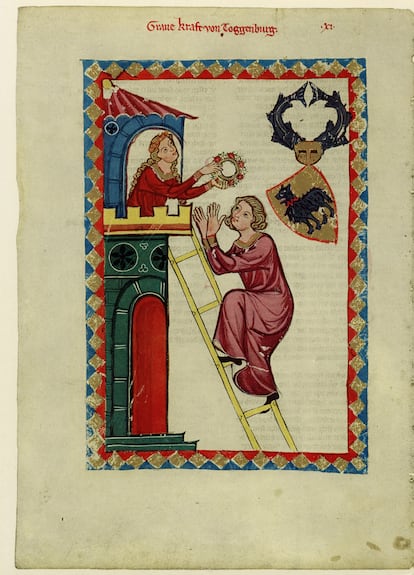 Graue kraft von Toggenburg.
·XI·